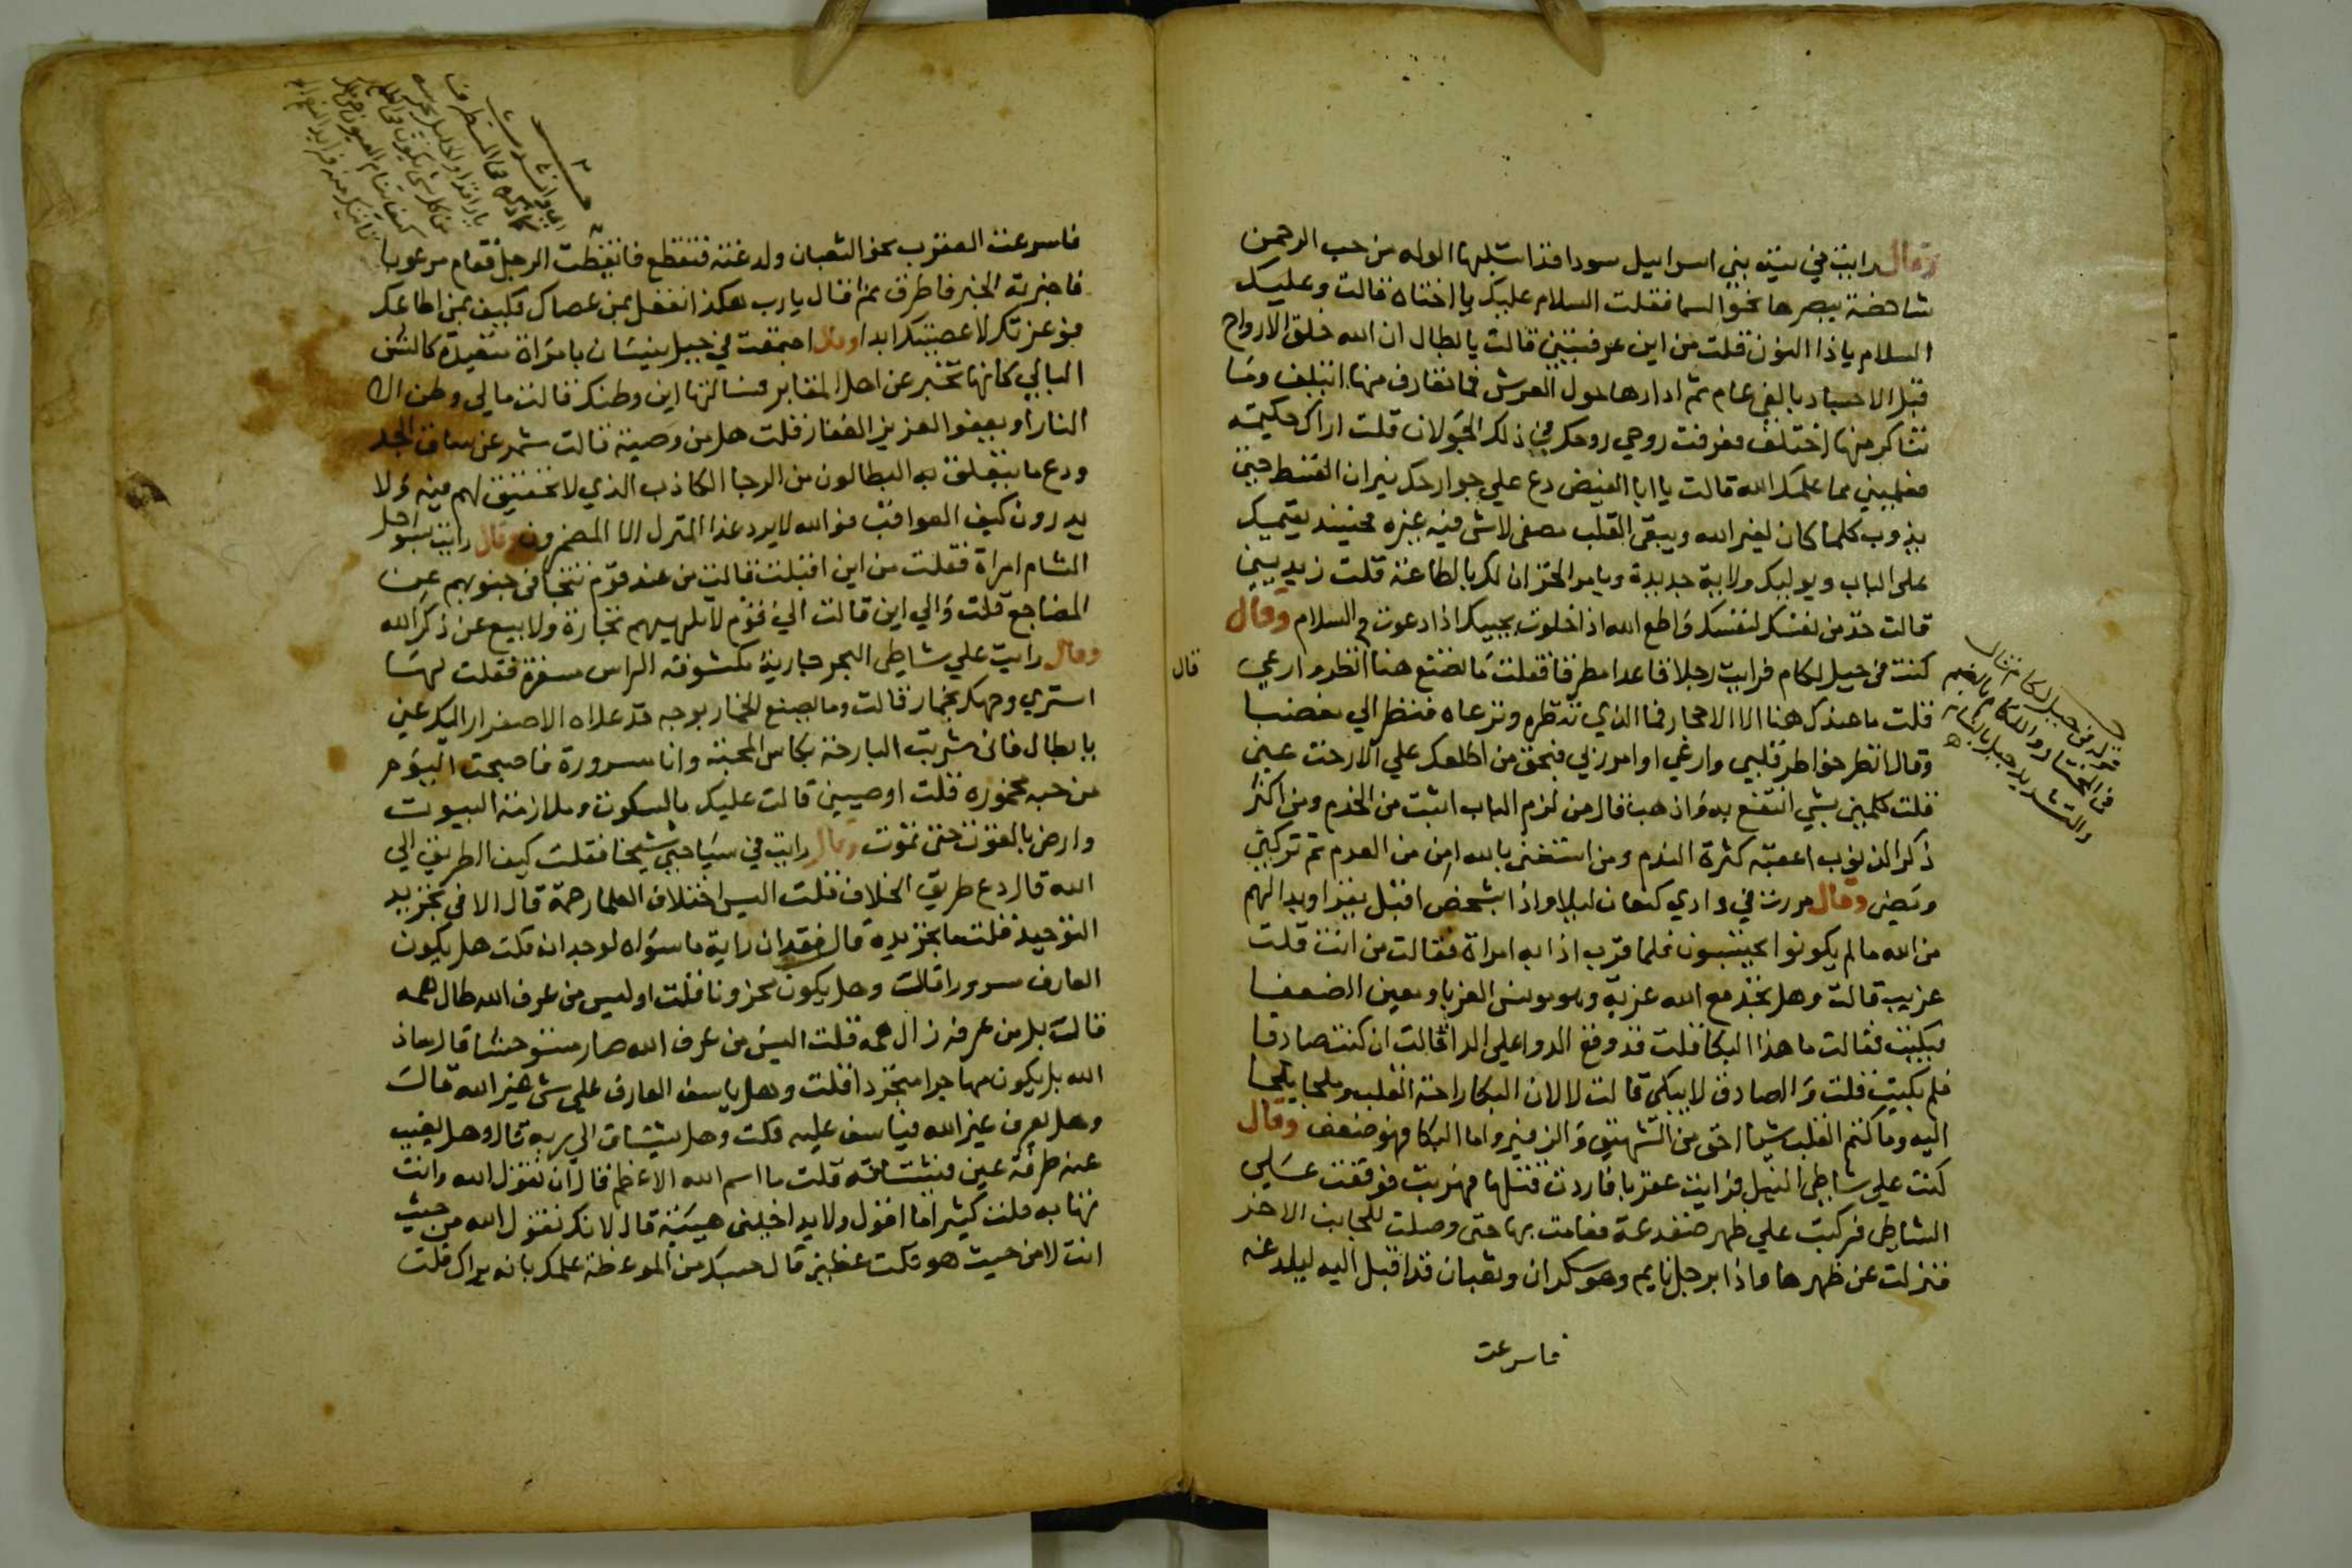 وقال رايت في تيه بني اسراييل سودا قد استلبها الوله من حب الرحمن
شاخصة ببصرها نحو السما فقلت السلام عليك يا اختاه قالت وعليك
السلام ياذا النون قلت من اين عرفتيني قالت يا بطال ان الله خلق الارواح
قبل الاجساد بالفي عام ثم ادارها حول العرش فما تعارف منها ايتلف وما
تناكر منها اختلف فعرفت روحي روحك في ذلك الجولان قلت اراك حكيمة
فعلميني مما علمك الله قالت يا ابا الفيض ضع علي جوارحك نيران القسط حتى
يذوب كلما كان لغير الله ويبقى القلب مصفى لاشى فيه غيره فحينيذ يقيمك
على الباب ويوليك ولاية جديدة ويامر الخزان لك بالطاعة قلت زيديني
قالت خذ من نفسك لنفسك واطع الله اذا خلوت يجيبك اذا دعوت والسلام وقال
كنت في جبل لكام فرايت رجلا قاعدا مطرقا فقلت ما تصنع هنا انظر وارعي
قلت ما عندك هنا الا الاحجار فما الذي تنظره وترعاه فنظر الي مغضبا
وقال انظر خواطر قلبي وارعي اوامر ربي فبحق من اطلعك علي الا رحت عني
قلت كلمني بشي انتفع به واذهب قال من لزم الباب اثبت من الخدم ومن اكثر
ذكر الذنوب اعقبه كثرة الندم ومن استغنى بالله امن من العدم ثم تركني
ومضى وقال مررت في وادي كنعان ليلا واذا بشخص اقبل يقرا وبدا لهم
من الله ما لم يكونوا يحتسبون فلما قرب اذا به امراة فقالت من انت قلت
غريب قالت وهل تجد مع الله غربة وهو مونس الغربا ومعين الضعفا
فبكيت فقالت ما هذا البكا فقلت قد وقع الدوا على الدا قالت ان كنت صادقا
فلم بكيت قلت والصادق لا يبكي قالت لا لان البكا راحة القلب وملجا يلجا
اليه وما كتم القلب شيا احق من الشهيق والزفير واما البكا فهو ضعف وقال
كنت علي شاطى النيل فرايت عقربا فاردت قتلها فهربت فوقفت علي
الشاطى فركبت علي ظهر ضفدعة فعامت بها حتى وصلت للجانب الاخر
فنزلت عن ظهرها واذا برجل نايم وهو سكران وثعبان قد اقبل اليه ليلدغه
فاسرعت
قال
قوله في جبل لكام قال
في المختار واللكام بالضم
والتشديد جبل بالشام
فاسرعت العقرب نحو الثعبان ولدغته فتقطع فايقظت الرجل فقام مرعوبا
فاخبرته الخبر فاطرق ثم قال يارب هكذا تفعل بمن عصاك فكيف بمن اطاعك
فوعزتك لا عصيتك ابدا وقال اجتمعت في جبل بيسان بامراة متعبدة كالشن
البالي كانها تخبر عن اهل المقابر فسالتها اين وطنك فقالت مالي وطن الا
النار او يعفو العزيز الغفار فقلت هل من وصية قالت شمر عن ساق الجد
ودع ما يتعلق به البطالون من الرجا الكاذب الذي لا تحقيق لهم فيه ولا
يدرون كيف العواقب فو الله لا يرد غدا المنزل الا المضمرون وقال رايت بسواحل
الشام امراة فقلت من اين اقبلت قالت من عند قوم تتجافى جنوبهم عن
المضاجع قلت والي اين قالت الي قوم لا تلهيهم تجارة ولا بيع عن ذكر الله
وقال رايت علي شاطى البحر جارية مكشوفة الراس مسفرة فقلت لها
استري وجهك بخمار قالت وما يصنع الخمار بوجه قد علاه الاصفرار اليك عني
يا بطال فاني شربت البارحة بكاس المحبة وانا مسرورة فاصبحت اليوم
من حبه مخمورة قلت اوصيني قالت عليك بالسكوت وملازمة البيوت
وارض بالقوت حتى تموت وقال رايت في سياحتي شيخا فقلت كيف الطريق الي
الله قال دع طريق الخلاف قلت اليس اختلاف العلما رحمة قال الا في تجريد
التوحيد قلت ما تجريده قال فقدان راية ما سواه لوجدانه قلت هل يكون
العارف مسرورا قالت وهل يكون محزونا قلت اوليس من عرف الله طال همه
قالت بل من عرفه زال همه قلت اليس من عرف الله صار مستوحشا قال معاذ
الله بل يكون مهاجرا متجردا قلت وهل ياسف العارف على شى غير الله قالت
وهل يعرف غير الله فياسف عليه قلت وهل يشتاق الي ربه قال وهل يغيب
عنه طرفة عين فيشتاقه قلت ما اسم الله الاعظم قال ان تقول الله وانت
تهابه قلت كثيرا ما اقول ولا يداخلني هيبة قال لانك تقول الله من حيث
انت لا من حيث هو قلت عظني قال حسبك من الموعظة علمك بانه يراك قلت